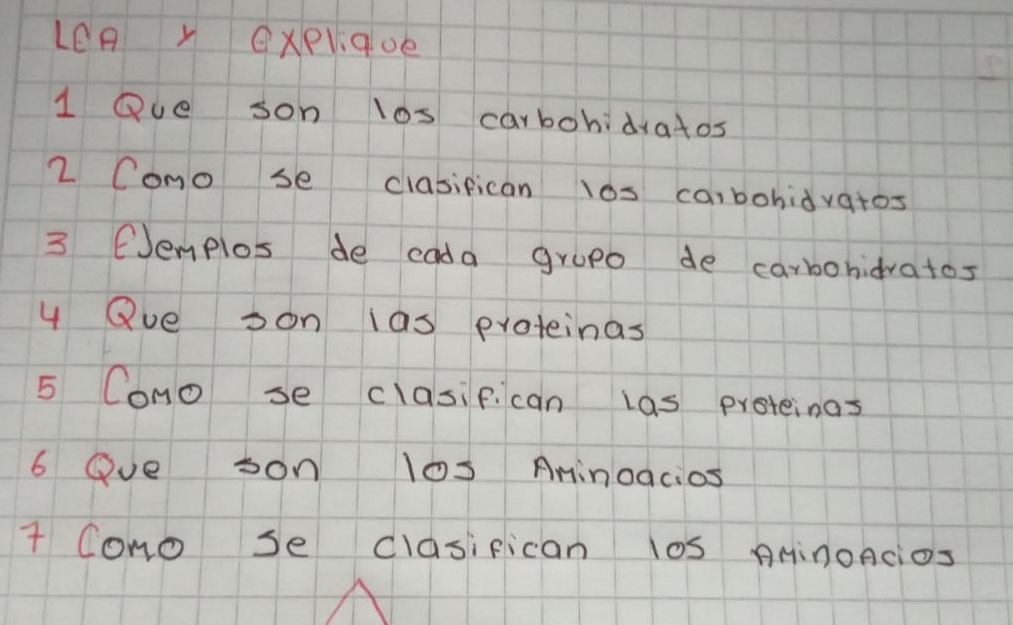 LEA Y EXPlique
1 Que son los carbohidratos
2 Como se clasifican los carbohidratos
3 EJemplos de cada grupo de carbohidratos
4 Que son las proteinas
5 Como se clasifican las proteinas
6 Que son los Aminoacios
7 Como se clasifican los AminoAcios